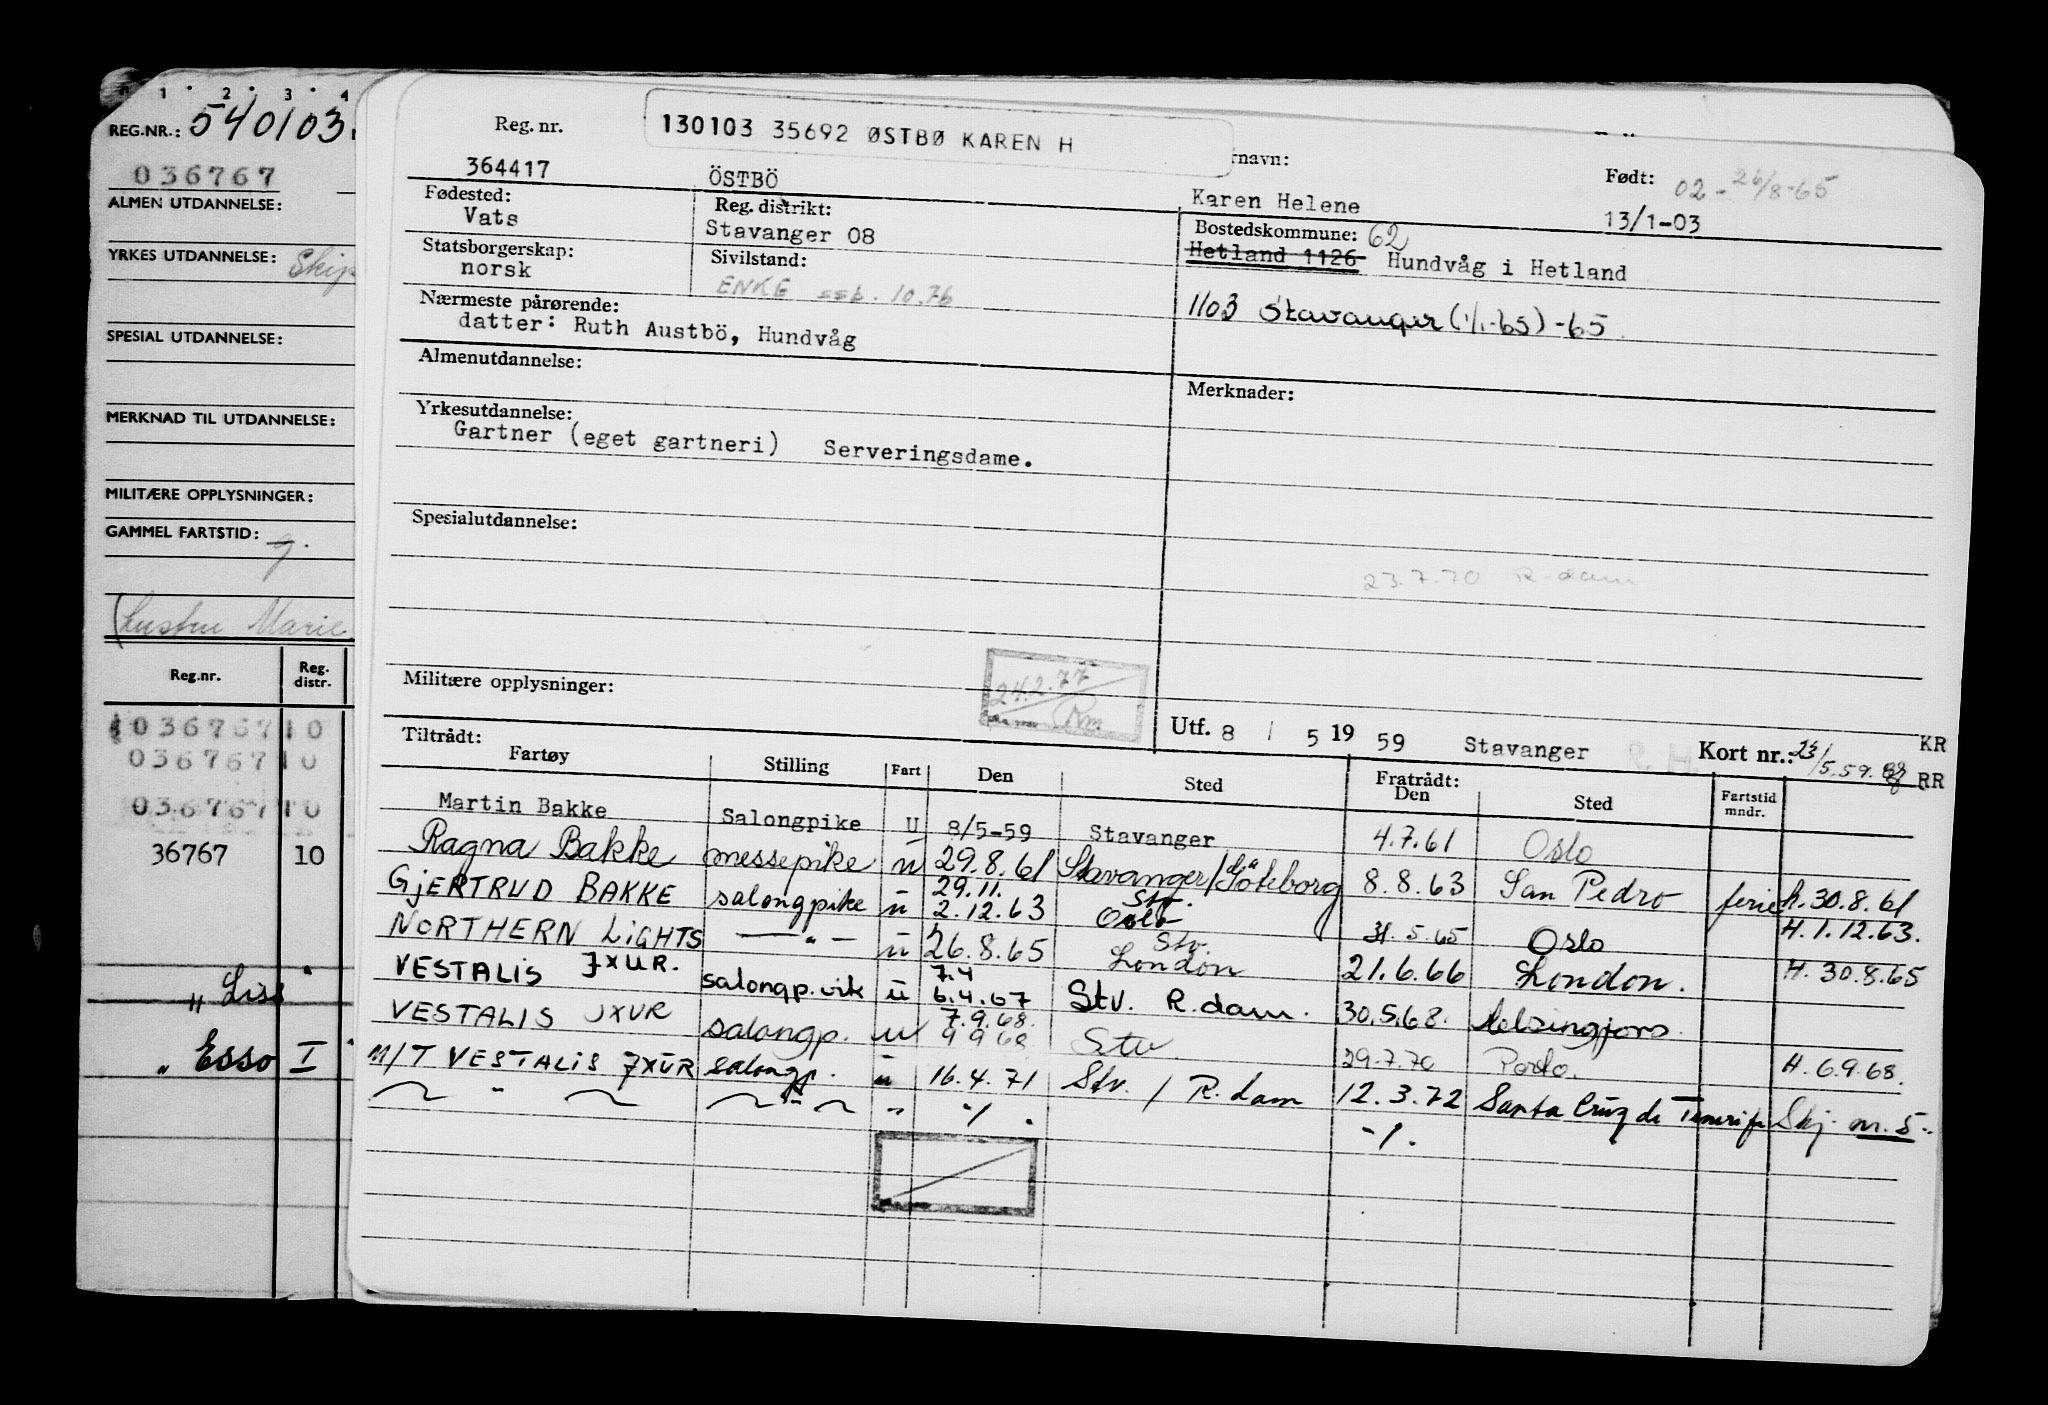 1 2 3 4
REG.NR.: 540103
036767
ALMEN UTDANNELSE:
YRKES UTDANNELSE: Skip
SPESIAL UTDANNELSE:
MERKNAD TIL UTDANNELSE:
MILITÆRE OPPLYSNINGER:
GAMMEL FARTSTID:
Marie
Reg.nr. Reg. distr.
036767 10
036767 10
036767 10
36767 10
„ Lis
„ Esso I
Reg. nr. 130103 35692 ØSTBØ KAREN H
364417 ÖSTBÖ rnavn: Karen Helene Født: 02 - 26/8-65
13/1-03
Fødested: Vats Reg. distrikt: Stavanger 08 Bostedskommune: 62
Hetland 1126 Hundvåg i Hetland
Statsborgerskap: norsk Sivilstand: ENKE ssb. 10.76
1103 Stavanger (1/1-65) -65.
Nærmeste pårørende:
datter: Ruth Austbö, Hundvåg
Almenutdannelse: Merknader:
Yrkesutdannelse:
Gartner (eget gartneri) Serveringsdame.
Spesialutdannelse:
23.7.70 R.dam
24.2.77
Rm
Militære opplysninger: Utf. 8 / 5 19 59 Stavanger R.H. Kort nr.: 23/5.59. KR
RR
Tiltrådt: Fartøy Stilling Fart Den Sted Fratrådt: Den Sted Fartstid mndr.
Martin Bakke Salongpike U 8/5-59 Stavanger 4.7.61 Oslo
Ragna Bakke messepike u 29.8.61 Stavanger/Göteborg 8.8.63 San Pedro ferie h. 30.8.61
29.11. Stv.
GJERTRUD BAKKE salongpike u 2.12.63 Oslo 31.5.65 Oslo H. 1.12.63.
NORTHERN LIGHTS — „ — u 26.8.65 Stv. London 21.6.66 London. H. 30.8.65
7.4
VESTALIS JXUR. salongp. u 6.4.67 Stv. R.dam. 30.5.68. Helsingfors.
7.9.68.
VESTALIS JXUR salongp. u 9.9.68 Stv. 29.7.70 H. 6.9.68.
M/T VESTALIS JXUR salongp. u 16.4.71 Stv. / R.dam 12.3.72 Santa Cruz de Tenerife Skj. nr. 5.
„ „ „ -/. -/.